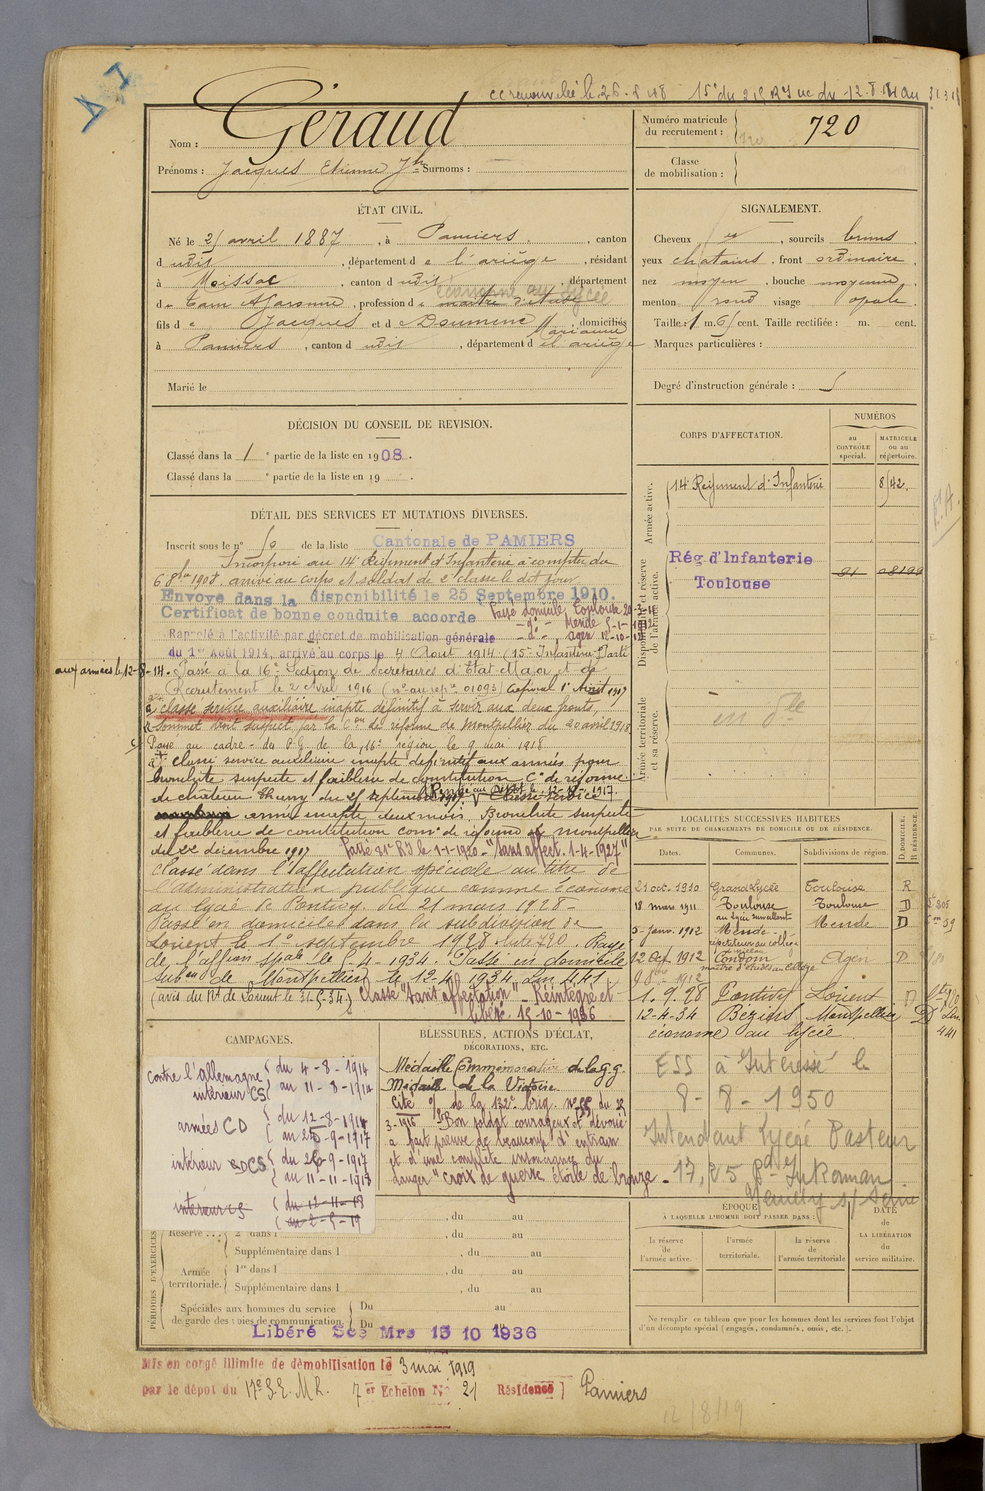 cc renouvelée le 26-8-18 15e du 215 RI
Nom : Géraud
Prénoms : Jacques Etienne Jh Surnoms :
Numéro matricule du recrutement : 720
Classe de mobilisation :
ÉTAT CIVIL.
Né le 2 avril 1887, à Pamiers, canton
dudit, département de l'ariège, résidant
à Moissac, canton dudit, département
de Tarn et Garonne, profession de maître d'études
économe au lycée
fils de Jacques et de Doumenc Marianne, domiciliés
à Pamiers, canton dudit, département de l'ariège
Marié le
SIGNALEMENT.
Cheveux et, sourcils bruns,
yeux chatains, front ordinaire,
nez moyen, bouche moyenne,
menton rond visage opale
Taille : 1 m. 65 cent. Taille rectifiée : m. cent.
Marques particulières :
Degré d'instruction générale : 5
DÉCISION DU CONSEIL DE REVISION.
Classé dans la 1e partie de la liste en 1908.
Classé dans la e partie de la liste en 19 .
CORPS D'AFFECTATION.
NUMÉROS
au CONTRÔLE spécial.
MATRICULE ou au répertoire.
Armée active.
14e Régiment d'Infanterie 8142.
Disponibilité et réserve de l'armée active.
Rég. d'Infanterie
Toulouse
Armée territoriale et sa réserve.
DÉTAIL DES SERVICES ET MUTATIONS DIVERSES.
Inscrit sous le n° 50 de la liste Cantonale de PAMIERS
Incorporé au 14e Régiment d'Infanterie à compter du
6 8bre 1908, arrivé au corps et soldat de 2e classe le dit jour.
Envoyé dans la disponibilité le 25 Septembre 1910.
Certificat de bonne conduite accordé
Passé domicile Toulouse 20-3-11
-d°- Mende 5-1-1912
-d°- Agen 12-10-12
Rappelé à l'activité par décret de mobilisation générale
du 1er Août 1914, arrivé au corps le 4 Août 1914 (15e Infanterie) Parti
aux armées le 12-8-14. Passé à la 16e Section de Secrétaires d'Etat-Major et de
Recrutement le 2 Avril 1916 (n° au rep. 01093) Caporal 1er Avril 1917
Classé service auxiliaire inapte définitif à servir aux deux fronts,
Sommet droit suspect par la Con de réforme de Montpellier du 20 avril 1918
Passé au cadre du P.G. de la 16e région le 9 mai 1918
classé service auxiliaire inapte définitif aux armées pour
bronchite suspecte et faiblesse de constitution Con de réforme
de chateau Thierry du 25 septembre 1917. Rentré au Dépôt le 12-10-1917. Classé service
armé inapte deux mois. Bronchite suspecte
et faiblesse de constitution com. de réforme de montpellier
du 22 décembre 1917 Passé 21e RI le 1-1-1920 - "sans affect. 1-4-1927"
Classé dans l'affectation spéciale au titre de
l'administration publique comme économe
au lycée de Pontivy, du 21 mars 1928 -
Passé en domicile dans la subdivision de
Lorient le 1er septembre 1928 liste 720. Rayé
de l'affon spale le 5-4-1934. Passé en domicile
subon de Montpellier le 12-4-1934 Lin 441
(avis du Rt de Lorient le 31-5-34) Classé "sans affectation" - Réintégré et
libéré 15-10-1936
LOCALITÉS SUCCESSIVES HABITÉES
PAR SUITE DE CHANGEMENTS DE DOMICILE OU DE RÉSIDENCE.
Dates. Communes. Subdivisions de région. D. DOMICILE. R. RÉSIDENCE.
21 oct. 1910 Grand Lycée Toulouse R
18 mars 1911 Toulouse Toulouse D
au lycée surveillant
5 janv. 1912 Mende Mende D
répétiteur au collège
12 Oct. 1912 Condom Agen D
maître d'études au collège
1.9.28 Pontivy Lorient D
12-4-34 Béziers Montpellier D Lin 441
économe au lycée
ESS à Intéressé le
8-8-1950
Intendant Lycée Pasteur
17, 25 Bd Inkerman
Neuilly s/ Seine
CAMPAGNES.
contre l'allemagne
intérieur CS du 4-8-1914
au 11-8-1914
armées CD du 12-8-1914
au 25-9-1917
intérieur CS du 26-9-1917
au 11-11-1918
intérieur CS du 12-11-18
au 2-5-19
BLESSURES, ACTIONS D'ÉCLAT,
DÉCORATIONS, ETC.
Médaille Commémorative de la g.g.
Médaille de la Victoire
Cité o/ de la 132e brig. n° 55 du 25
3-1916 "Bon soldat courageux et dévoué
a fait preuve de beaucoup d'entrain
et d'une complète insouciance du
danger" croix de guerre étoile de bronze.
PÉRIODES D'EXERCICES
Réserve 2e dans l , du au
Supplémentaire dans l , du au
Armée territoriale. 1re dans l , du au
Supplémentaire dans l , du au
Spéciales aux hommes du service de garde des voies de communication. Du au
Du
Libéré Sce Mre 15 10 1936
ÉPOQUE
À LAQUELLE L'HOMME DOIT PASSER DANS :
DATE DE LA LIBÉRATION du service militaire.
la réserve de l'armée active.
l'armée territoriale.
la réserve de l'armée territoriale
Ne remplir ce tableau que pour les hommes dont les services font l'objet
d'un décompte spécial (engagés, condamnés, omis, etc.).
Mis en congé illimité de démobilisation le 3 mai 1919
par le dépôt du 17e S.E.M.R. 7er Echelon N° 21 Résidence Pamiers